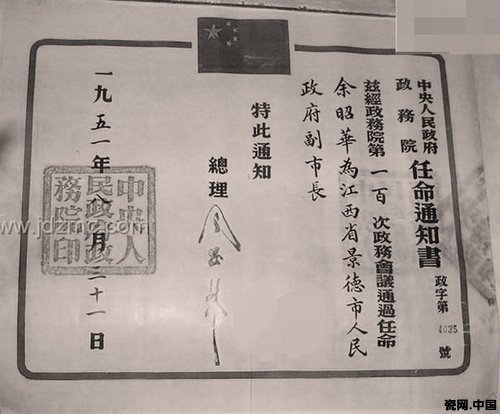 中央人民政府
政務院
任命通知書
政字第4035號
茲經政務院第一百次政務會議通過任命
余昭華為江西省景德市人民
政府副市長
特此通知
總理
一九五一年八月三十一日
中央人
民政府政
務院印
www.jdzmc.com
瓷网.中国